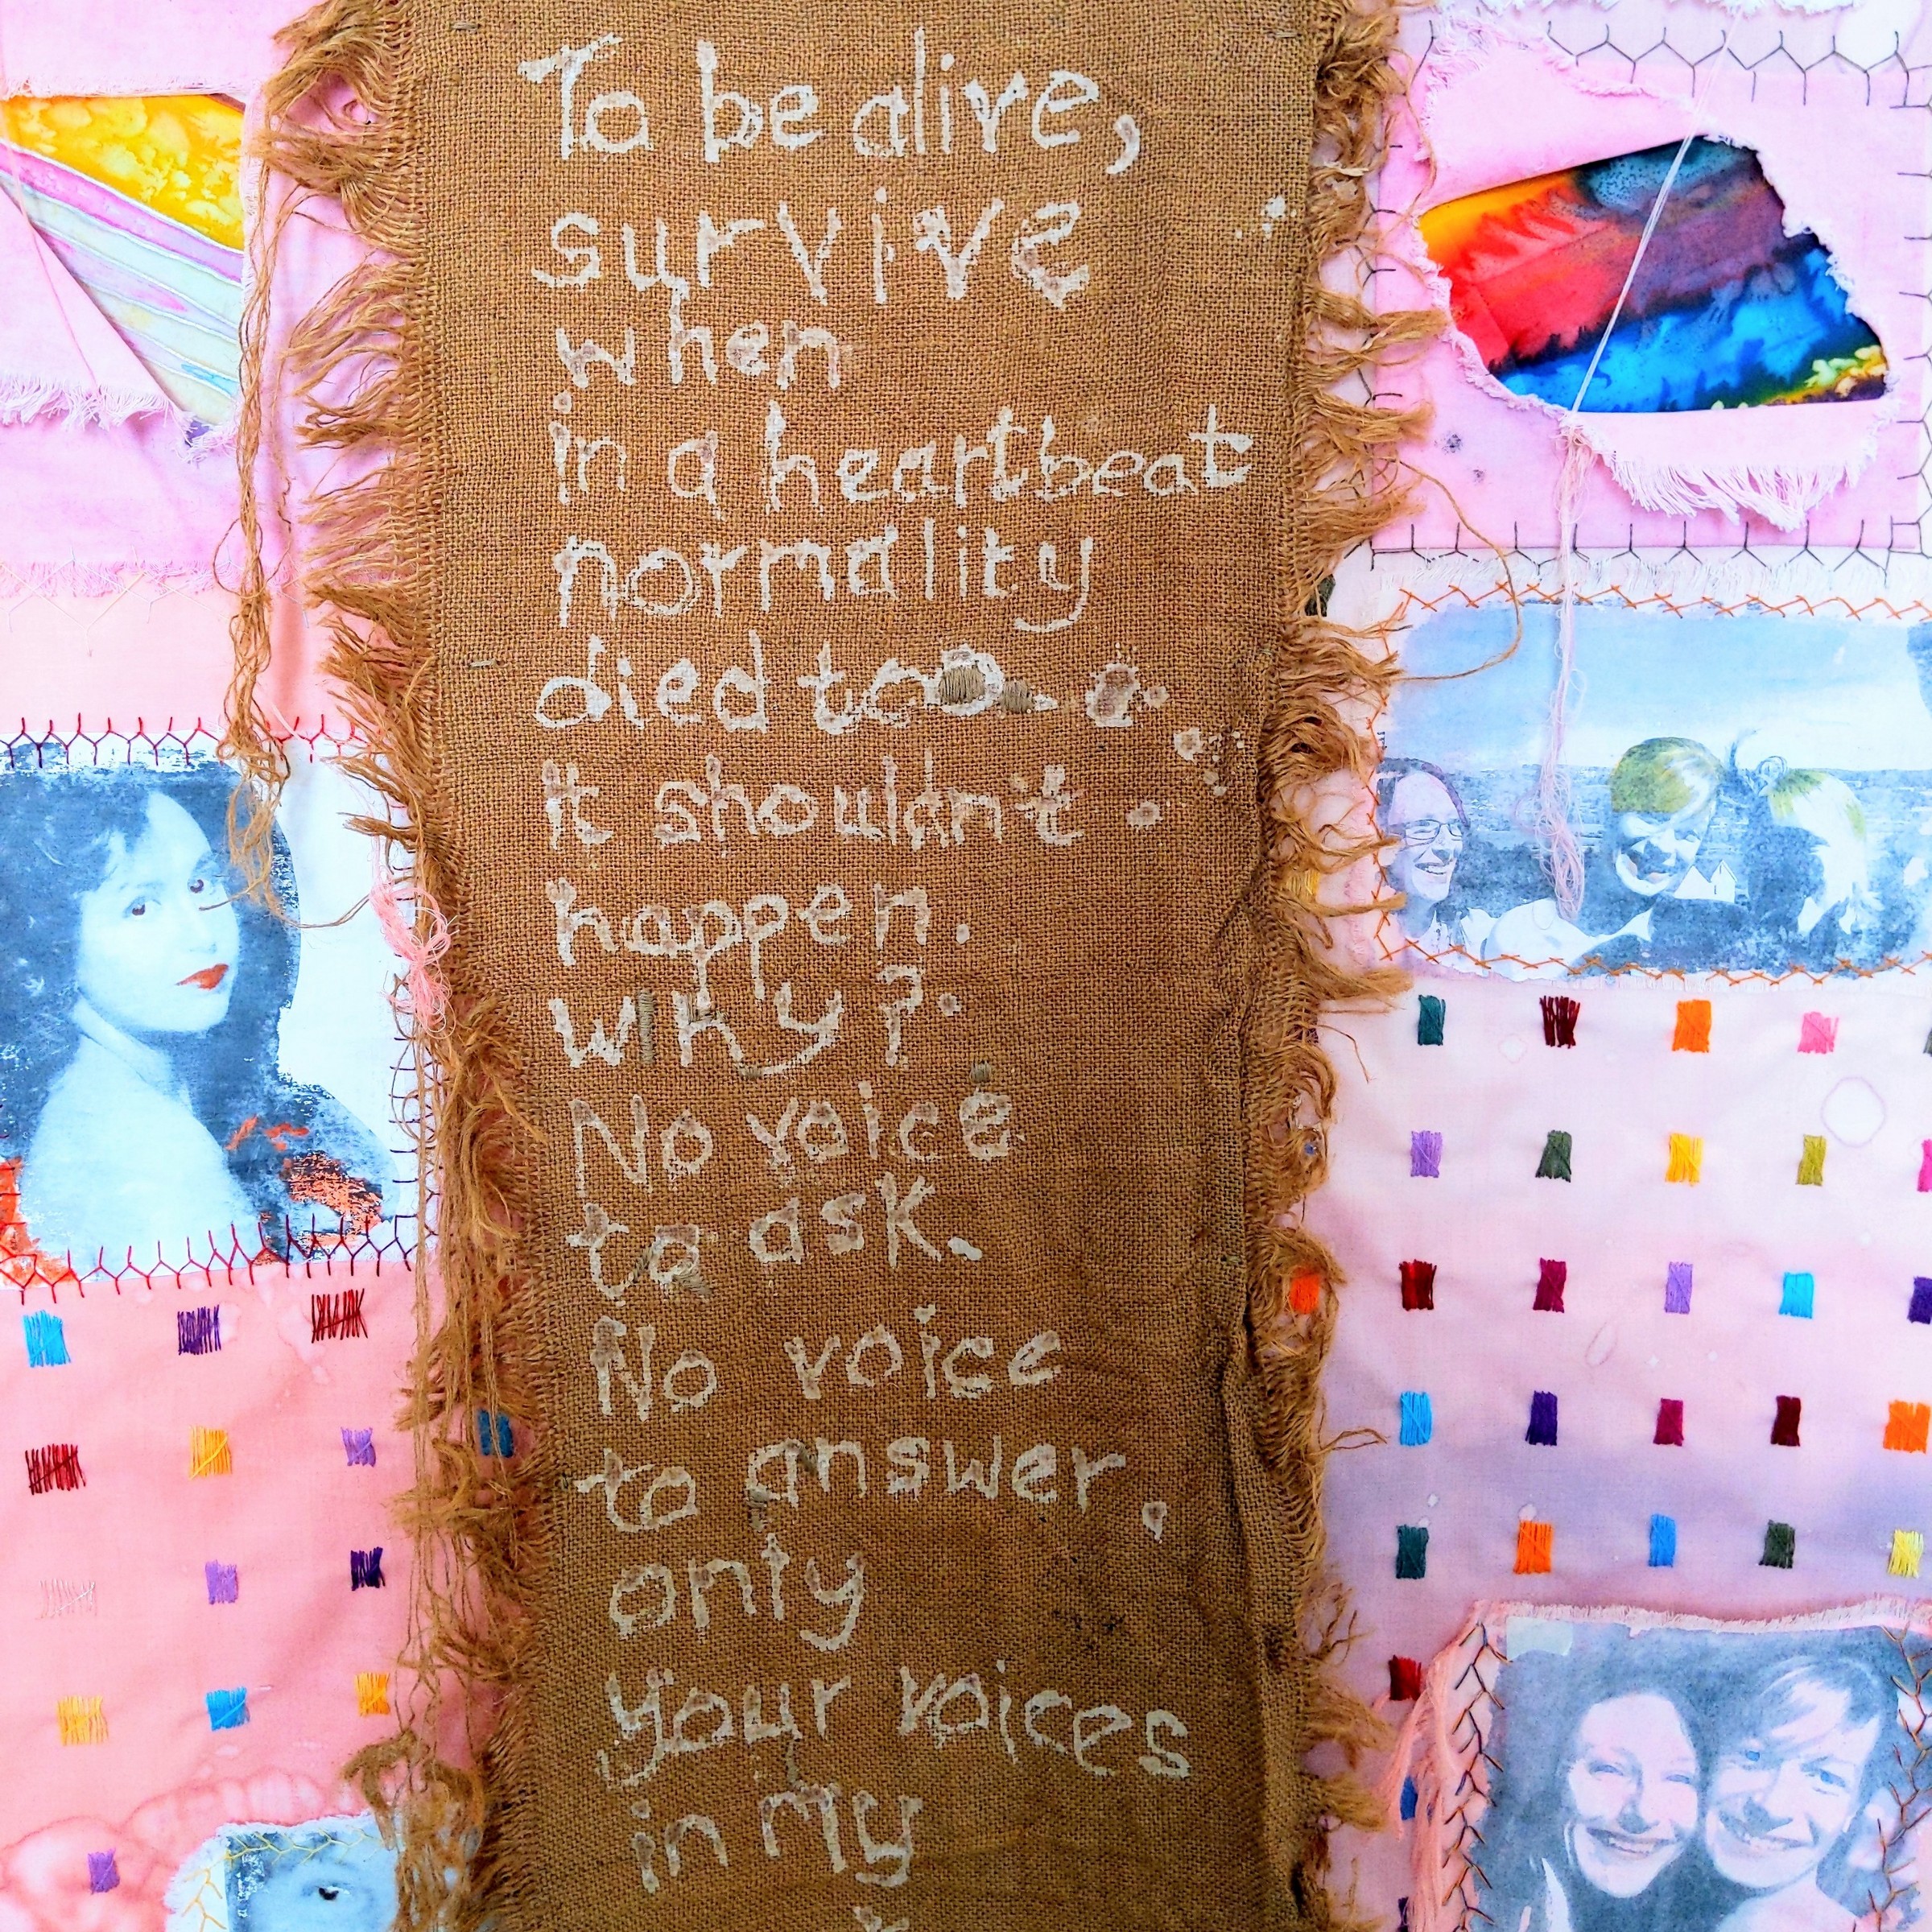 To be alive,
survive
when
in a heartbeat
normality
died too
it shouldn't
happen.
Why?
No voice
to ask.
No voice
to answer.
only
your voices
in my